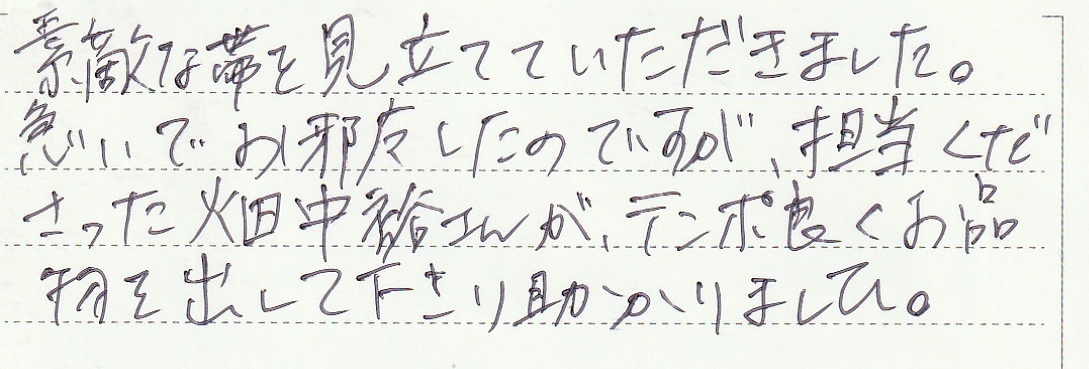 素敵な帯を見立てていただきました。
急いでお邪魔したのですが、担当くだ
さった畑中裕さんが、テンポ良くお品
物を出して下さり助かりました。